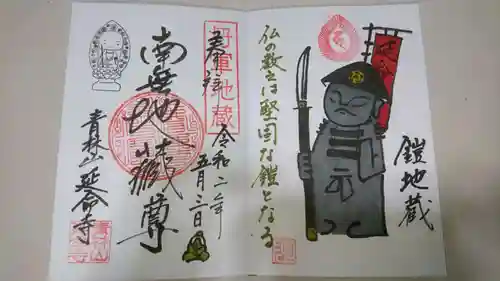 鎧地蔵
仏の教えは堅固な鎧となる
奉拝
令和二年
五月三日
南無地蔵尊
青林山延命寺